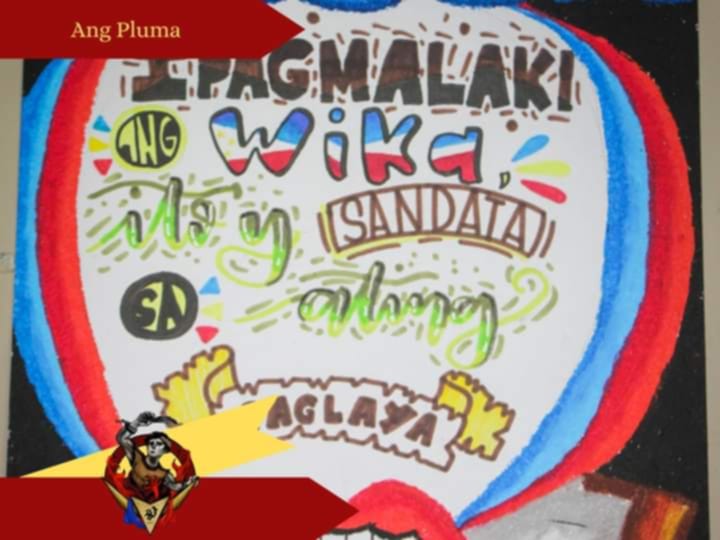 Ang Pluma
IPAGMALAKI
ANG Wika,
ito y SANDATA
SA ating
AGLAYA